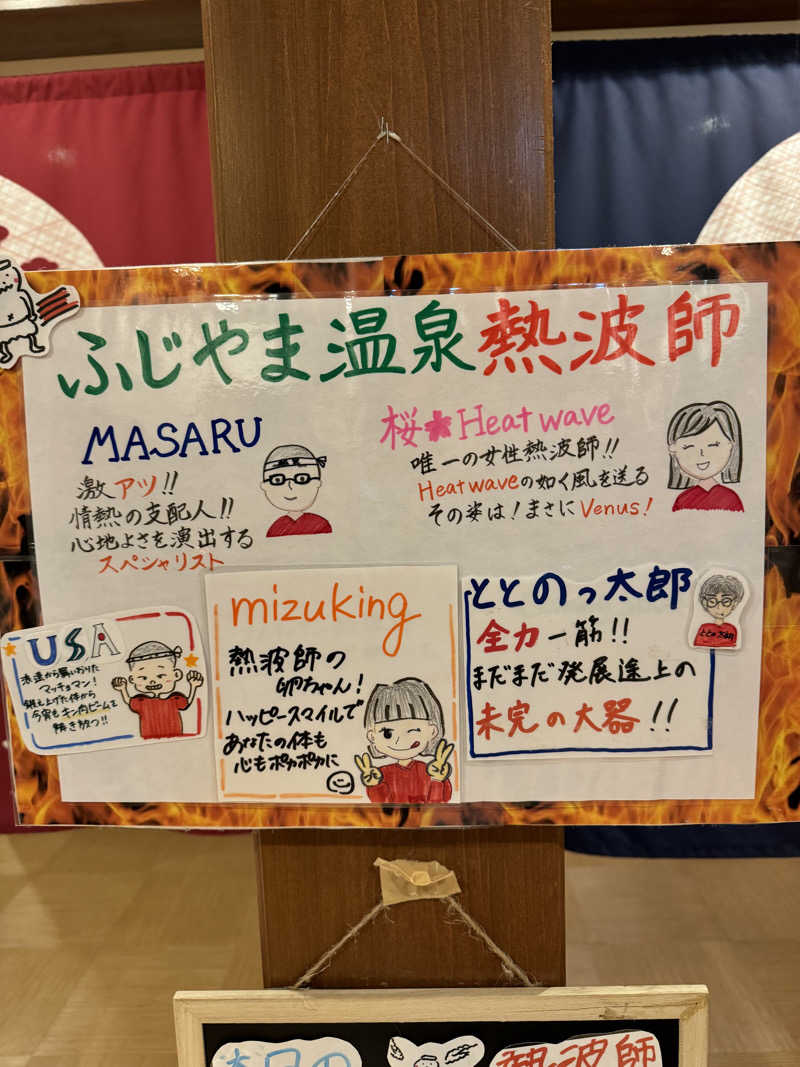 ふじやま温泉熱波師
MASARU
激アツ!!
情熱の支配人!!
心地よさを演出する
スペシャリスト
桜 Heat wave
唯一の女性熱波師!!
Heat waveの如く風を送る
その姿は!まさにVenus!
USA
マッチョマン!
鍛え上げた体から
今宵もキン肉ビームを
解き放つ!!
mizuking
熱波師の
卵ちゃん!
ハッピースマイルで
あなたの体も
心もポカポカに
ととのっ太郎
全力一筋!!
まだまだ発展途上の
未完の大器!!
本日の
熱波師